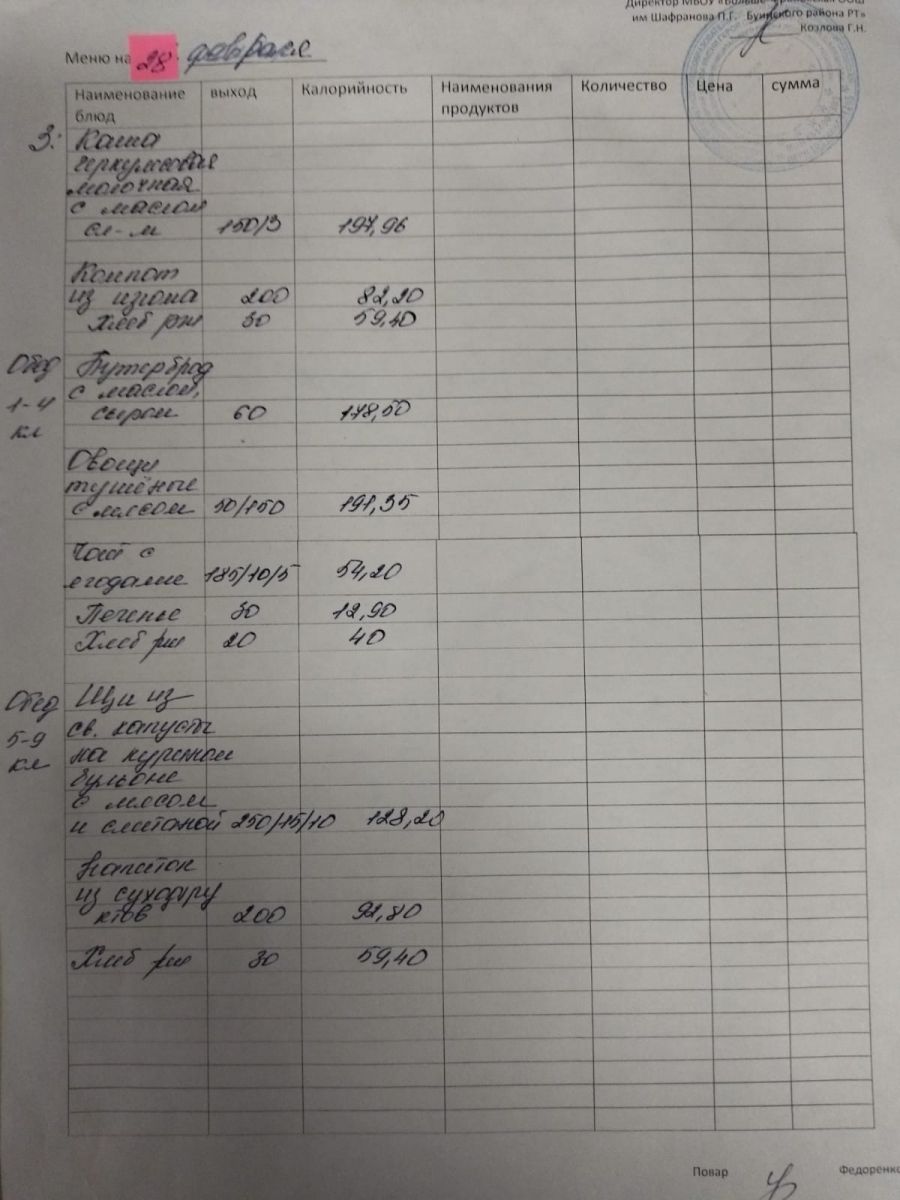 Директор МБОУ
им Шафранова П.Г. Буинского района РТ»
Козлова Г.Н.
Меню на 28 февраля
Наименование блюд выход Калорийность Наименования продуктов Количество Цена сумма
З: Каша
геркулесовая
молочная
с маслом
сл-м 150/3 197,96
Компот
из изюма 200 82,20
Хлеб рж 30 59,40
Обед Бутерброд
1-4 с маслом,
кл сыром 60 178,50
Овощи
тушёные
с мясом 50/150 191,35
Чай с
ягодами 185/10/5 54,20
Печенье 30 12,90
Хлеб рж 20 40
Обед Щи из
5-9 св. капусты
кл на курином
бульоне
с мясом
и сметаной 250/15/10 128,20
Напиток
из сухофру
ктов 200 92,80
Хлеб рж 30 59,40
Повар Федоренко